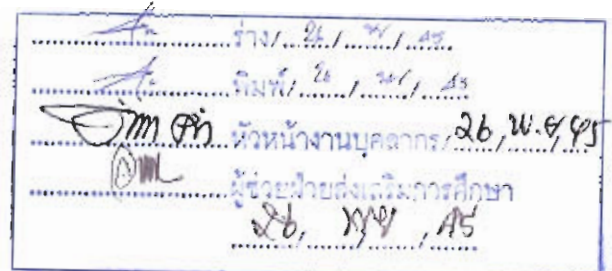 ร่าง/ 26 / พย / 45
พิมพ์/ 26 / พย / 45
หัวหน้างานบุคลากร/ 26, พ.ย, 45
ผู้ช่วยฝ่ายส่งเสริมการศึกษา
26, พย, 45